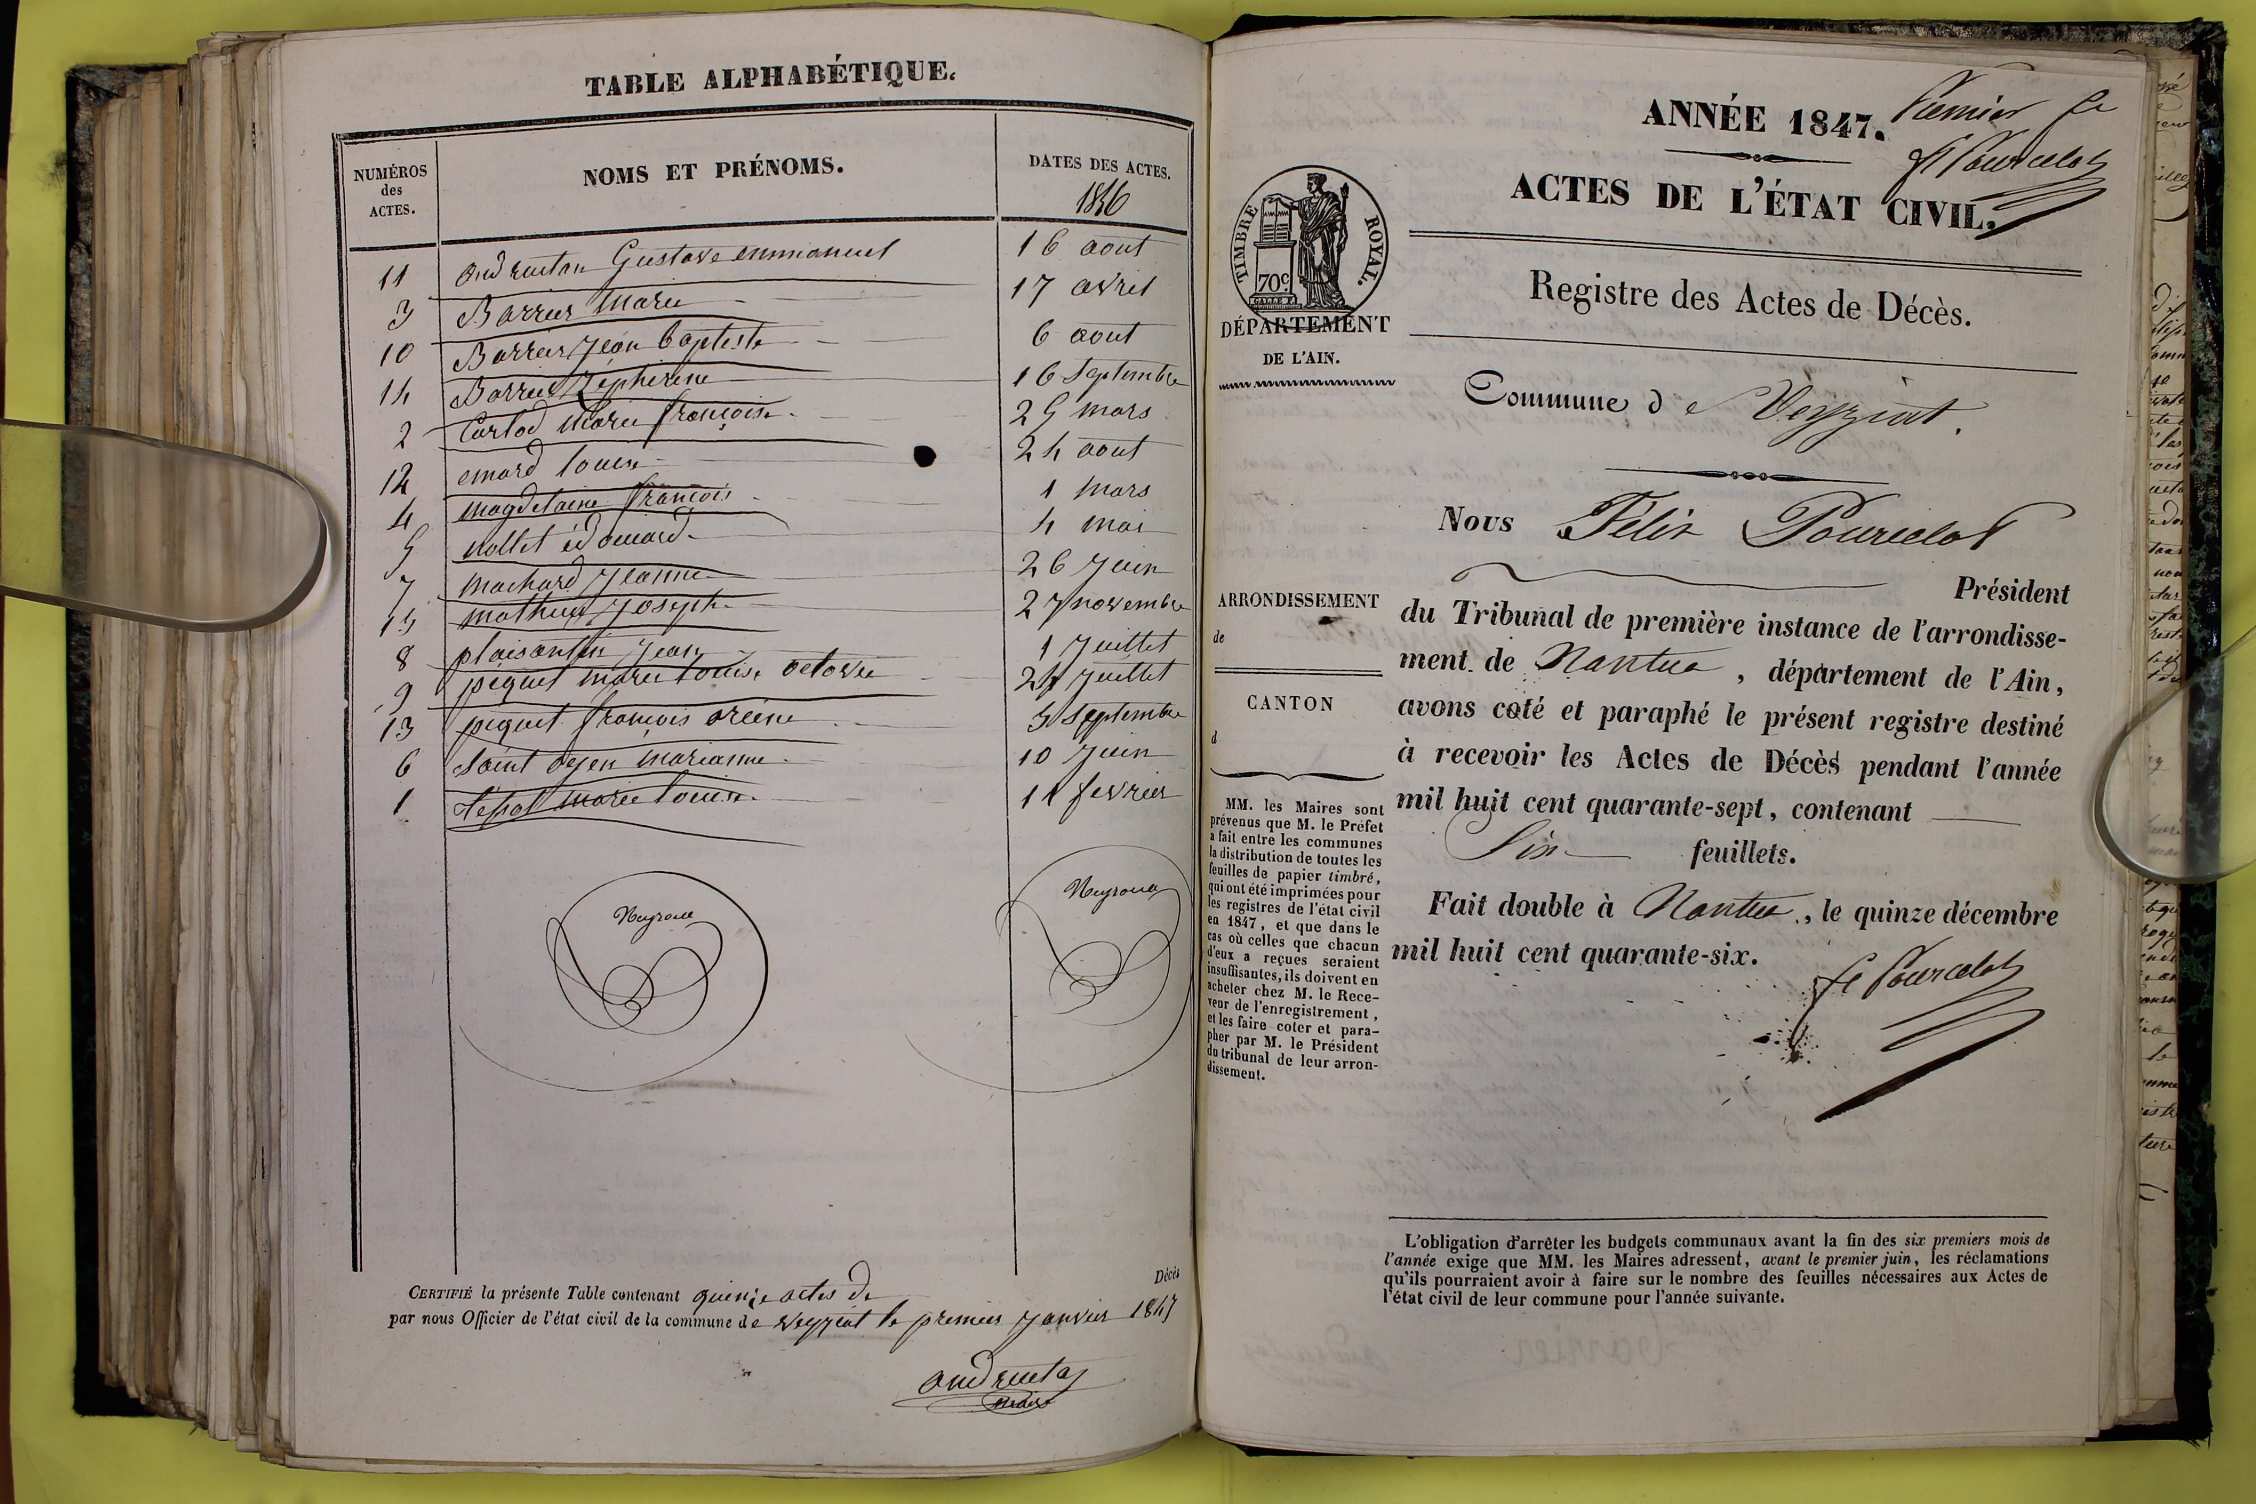 TABLE ALPHABÉTIQUE.
NUMÉROS
des
ACTES.
NOMS ET PRÉNOMS.
DATES DES ACTES.
1846
11 andruetan Gustave emmanuel 16 aout
3 Barrier Marie 17 avril
10 Barrier Jean baptiste 6 aout
14 Barrier Zephirine 16 Septembre
2 Carlod Marie françoise 25 mars
12 emard louise 24 aout
4 magdelaine françois 1 mars
5 mollet édouard 4 mai
7 machard Jeanne 26 Juin
15 mathieu Joseph 27 novembre
8 plaisantin Jean 1 Juillet
9 piquet marie louise octavie 24 Juillet
13 piquet françois 3 Septembre
6 Saint oyen marianne 10 Juin
1 marie louise 11 fevrier
Neyroud
Neyroud
Décès
CERTIFIÉ la présente Table contenant quinze actes de
par nous Officier de l'état civil de la commune de veyziat le premier Janvier 1847
andruetan
ANNÉE 1847.
Premier
fx Pourcelot
ACTES DE L'ÉTAT CIVIL.
TIMBRE ROYAL.
70c
DÉPARTEMENT
DE L'AIN.
Registre des Actes de Décès.
Commune de Veyziat.
Nous Félix Pourcelot
Président
du Tribunal de première instance de l'arrondisse-
ment de Nantua, département de l'Ain,
avons coté et paraphé le présent registre destiné
à recevoir les Actes de Décès pendant l'année
mil huit cent quarante-sept, contenant
Six feuillets.
Fait double à Nantua, le quinze décembre
mil huit cent quarante-six.
fx Pourcelot
ARRONDISSEMENT
de
CANTON
d
MM. les Maires sont
prévenus que M. le Préfet
a fait entre les communes
la distribution de toutes les
feuilles de papier timbré,
qui ont été imprimées pour
les registres de l'état civil
en 1847, et que dans le
cas où celles que chacun
d'eux a reçues seraient
insuffisantes, ils doivent en
acheter chez M. le Rece-
veur de l'enregistrement,
et les faire coter et para-
pher par M. le Président
du tribunal de leur arron-
dissement.
L'obligation d'arrêter les budgets communaux avant la fin des six premiers mois de
l'année exige que MM. les Maires adressent, avant le premier juin, les réclamations
qu'ils pourraient avoir à faire sur le nombre des feuilles nécessaires aux Actes de
l'état civil de leur commune pour l'année suivante.